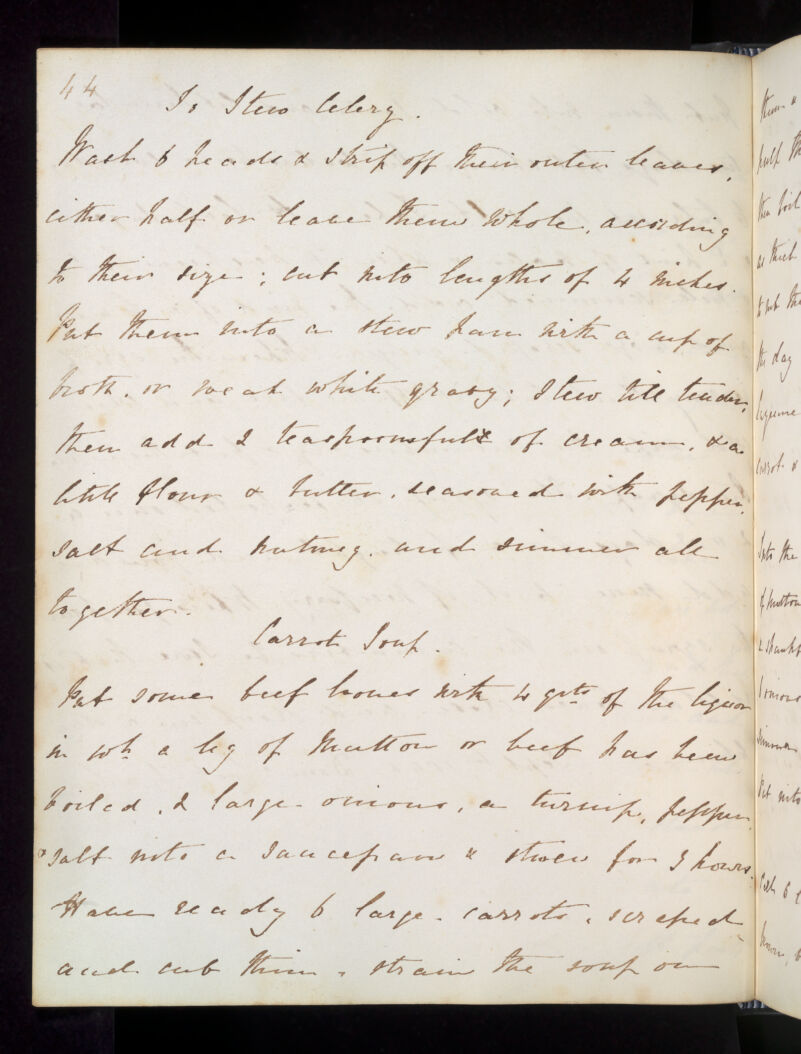 44
To Stew Celery.
Wash 6 heads & strip off their outer leaves,
either half or leave them whole, according
to their size; cut into lengths of 4 inches.
Put them into a stew pan with a cup of
broth, or weak white gravy; stew till tender,
then add 2 teaspoonsful of cream, & a
little flour & butter, seasoned with pepper,
salt and nutmeg, and simmer all
together.
Carrot Soup.
Put some beef bones with 4 qrts of the liquor
in wh a leg of Mutton or beef has been
boiled, 2 large onions, a turnip, pepper
& salt into a saucepan & stew for 3 hours.
Have ready 6 large carrots, scraped
and cut thin, strain the soup on
them &
pulp th
then boil
as thick
to put the
the day
carrot &
Into the
of mutton
& shanks
onions
simmer
Put into